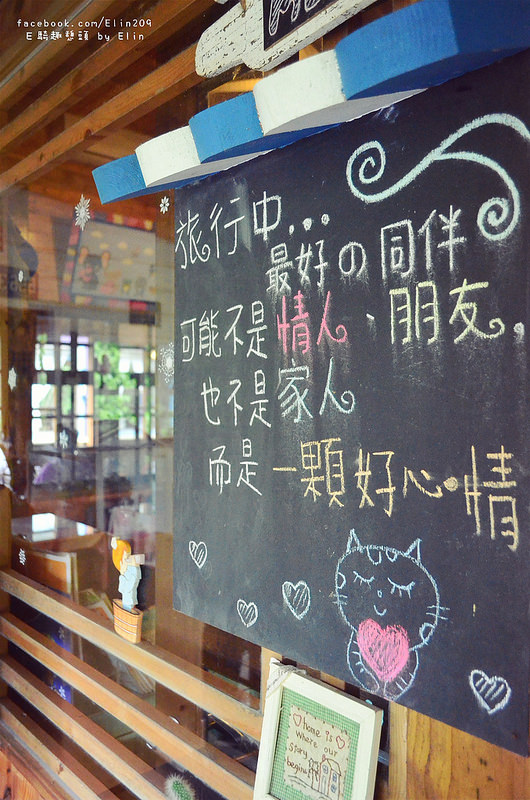 facebook.com/Elin209
E騎趣墊頭 by Elin
旅行中...
最好の同伴
可能不是情人、朋友。
也不是家人
而是一顆好心情
Home is
where our
story
begins